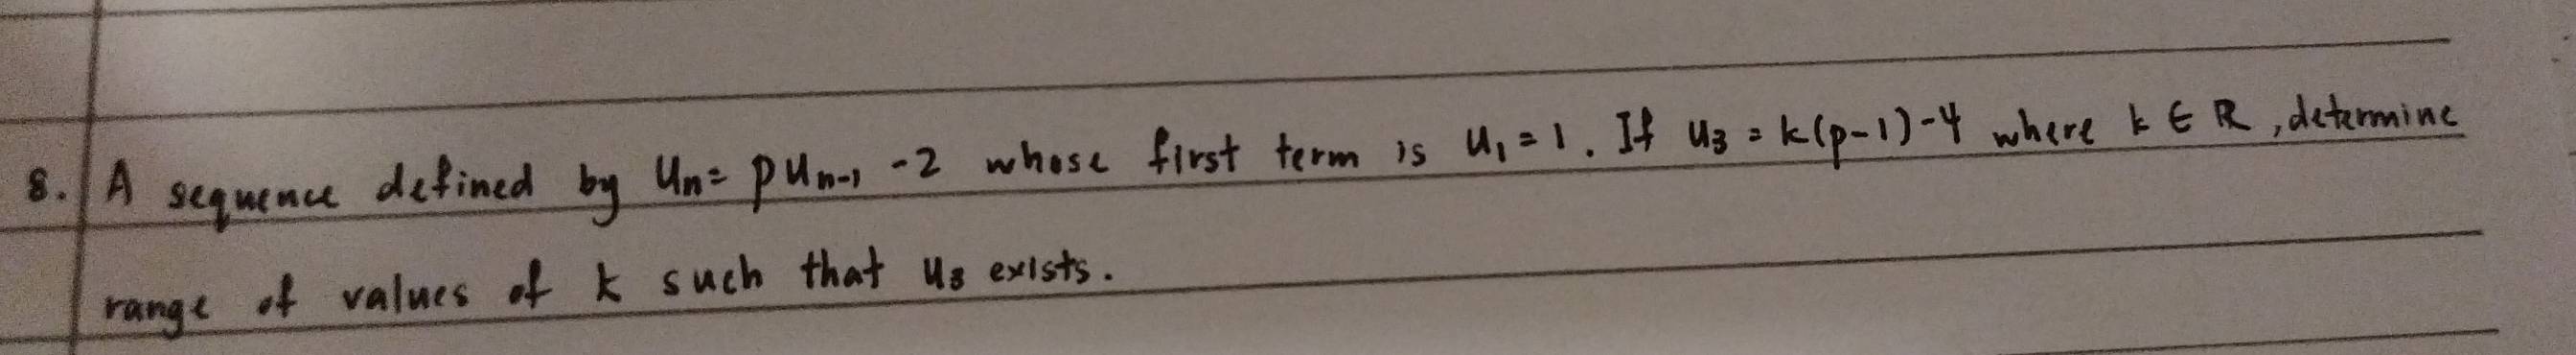 8. A sequence defined by uₙ = puₙ₋₁ - 2 whose first term is u₁ = 1. If u₃ = k(p-1)-4 where k ∈ R, determine
range of values of k such that u₃ exists.